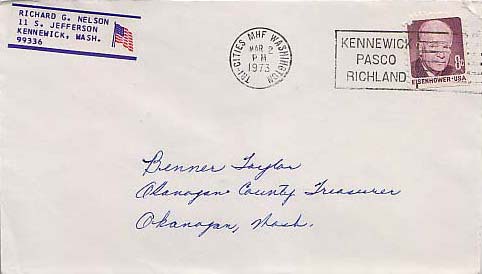 RICHARD G. NELSON
11 S. JEFFERSON
KENNEWICK, WASH.
99336
TRI-CITIES MHF WASHINGTON
MAR 2
PM
1973
KENNEWICK
PASCO
RICHLAND
8¢
EISENHOWER·USA
Benner Taylor
Okanogan County Treasurer
Okanogan, Wash.